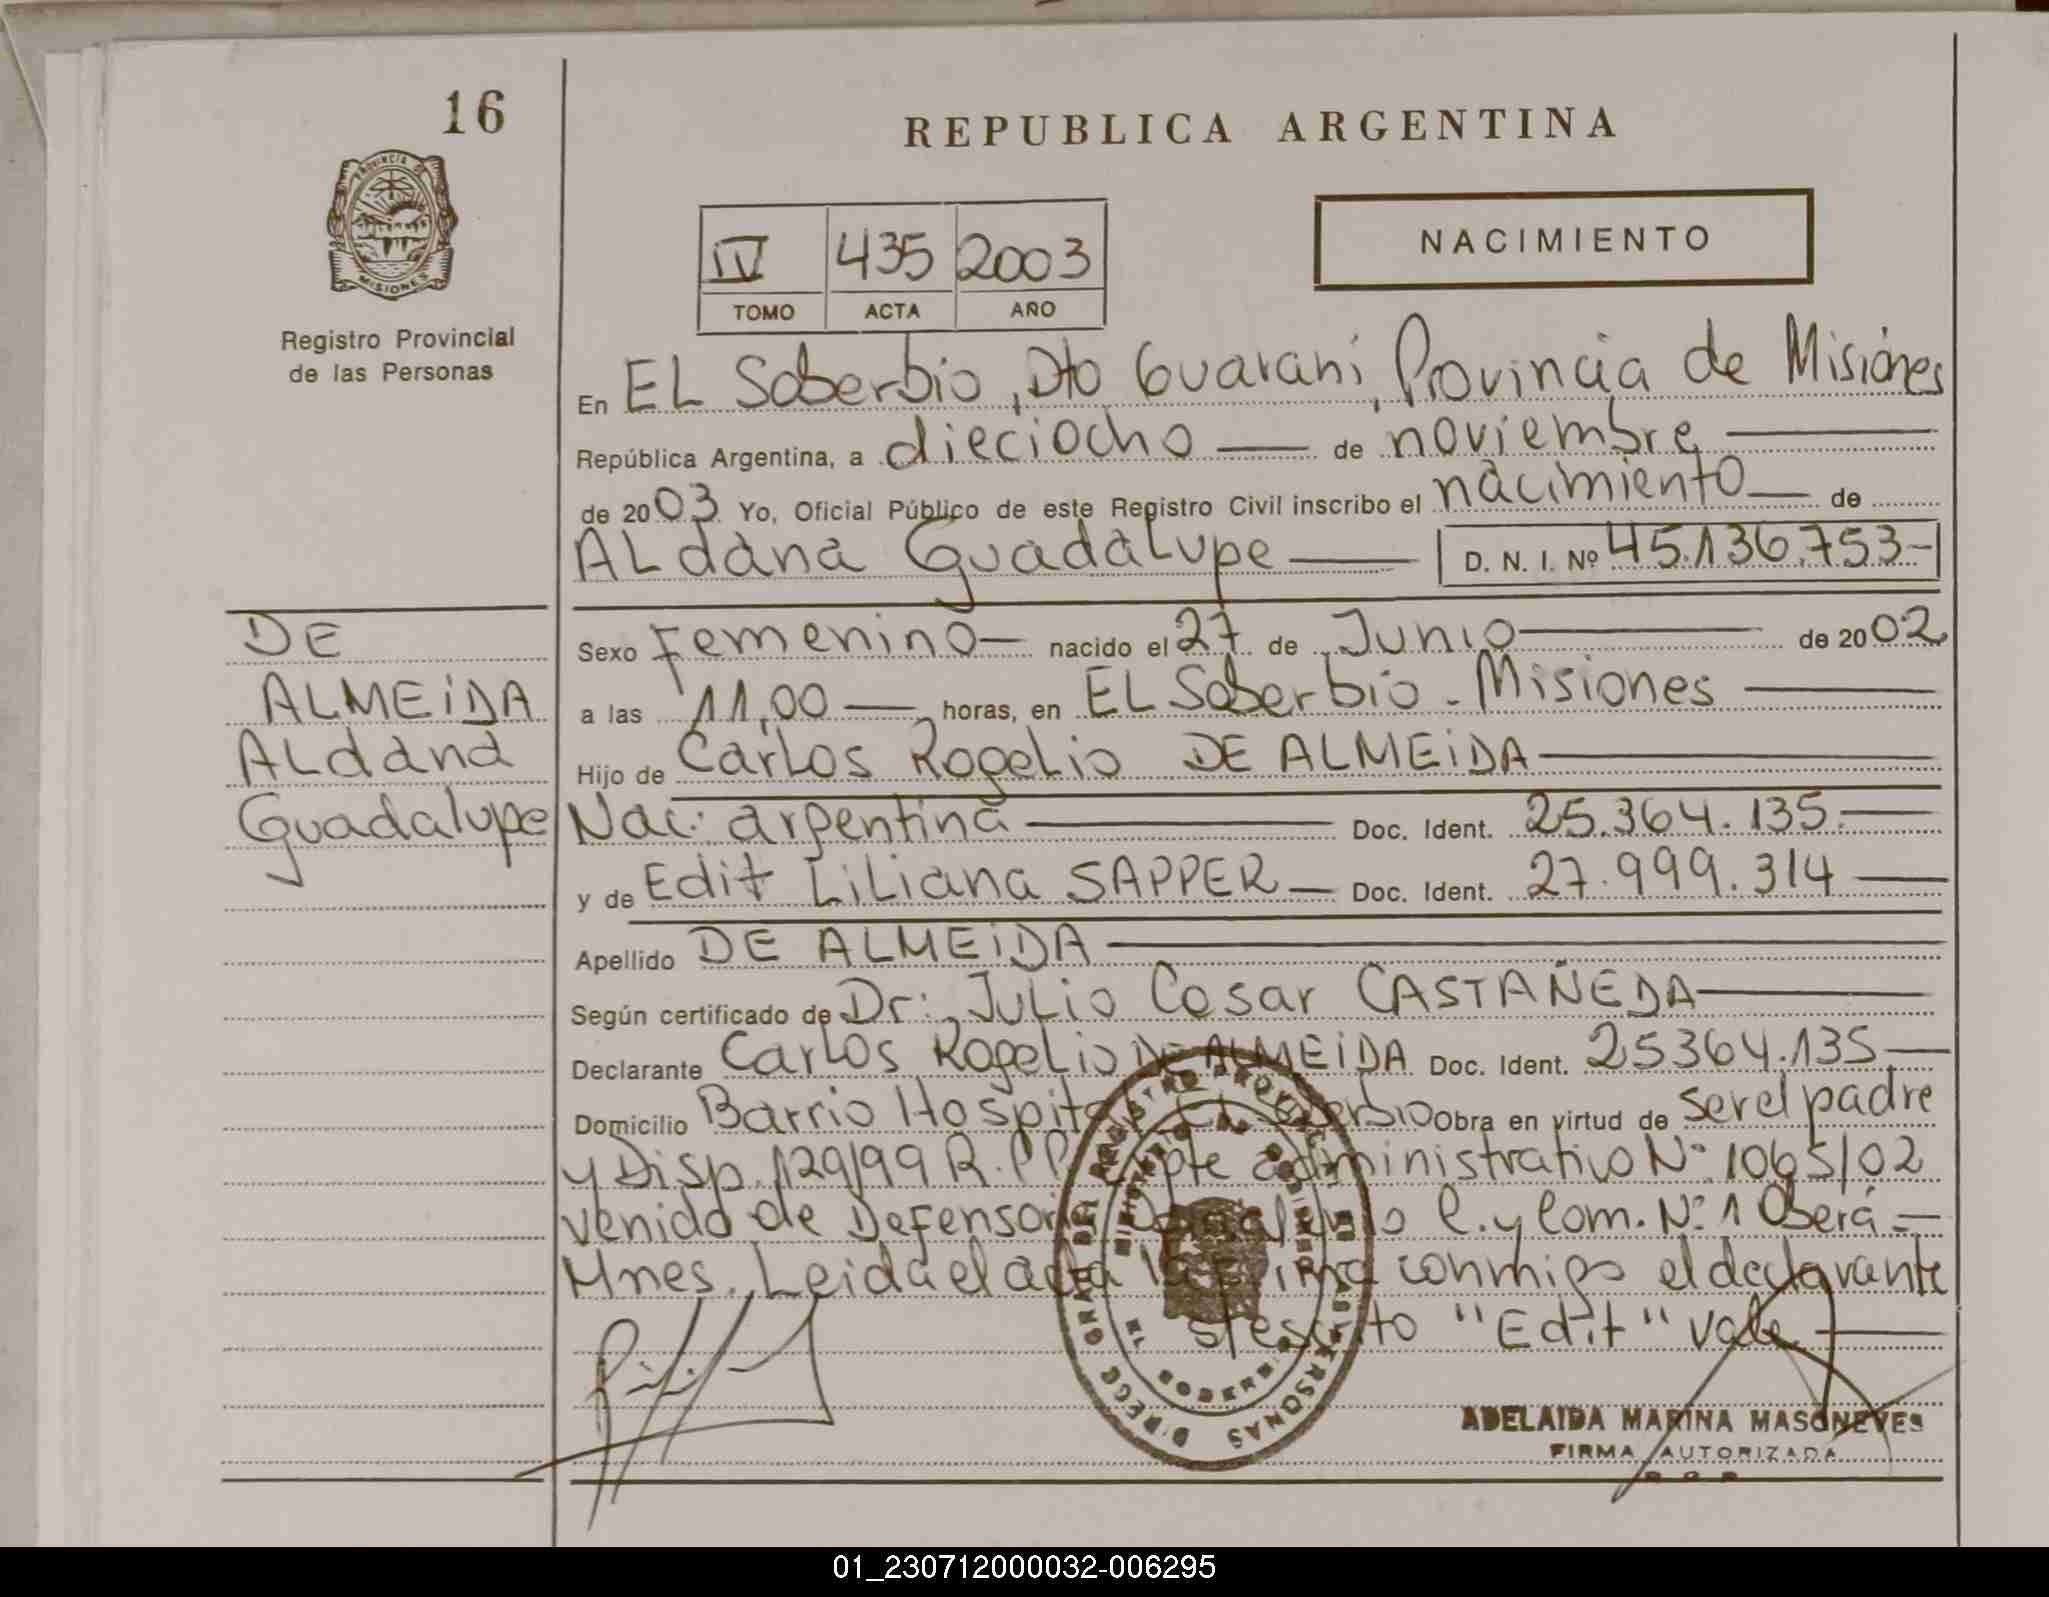 16
REPUBLICA ARGENTINA
PROVINCIA DE
MISIONES
Registro Provincial
de las Personas
IV 435 2003
TOMO ACTA AÑO
NACIMIENTO
En EL Soberbio, Dto Guaraní, Provincia de Misiones
República Argentina, a dieciocho — de noviembre —
de 2003 Yo, Oficial Público de este Registro Civil inscribo el nacimiento — de
ALdana GuadaLupe — D. N. I. Nº 45.136.753-
DE
ALMEiDA
ALdana
Guadalupe
Sexo Femenino — nacido el 27 de Junio — de 2002
a las 11,00 — horas, en EL Soberbio - Misiones —
Hijo de CarLos RogeLio DE ALMEiDA —
Nac: argentina — Doc. Ident. 25.364.135. —
y de Edit LiLiana SAPPER — Doc. Ident. 27.999.314 —
Apellido DE ALMEiDA —
Según certificado de Dr: JuLio Cesar CASTAÑEDA —
Declarante CarLos RogeLio DE ALMEiDA Doc. Ident. 25364.135 —
Domicilio Barrio Hospital EL Soberbio Obra en virtud de ser el padre
y Disp. 129/99 R.P.P. Expte administrativo Nº 1065/02
venido de Defensoria C. y Com. Nº 1 Oberá. —
Mnes. Leida el acta la firma conmigo el declarante
s/escrito "Edit" vale —
ADELAIDA MARINA MASONEVES
FIRMA AUTORIZADA
01_230712000032-006295